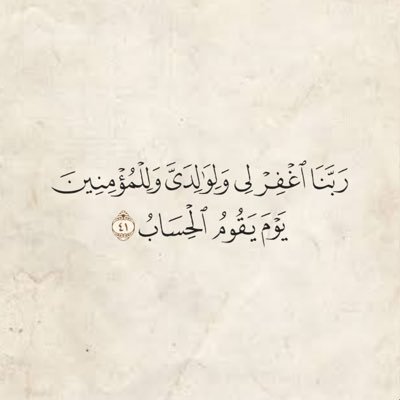 رَبَّنَا ٱغۡفِرۡ لِي وَلِوَٰلِدَيَّ وَلِلۡمُؤۡمِنِينَ
يَوۡمَ يَقُومُ ٱلۡحِسَابُ ٤١